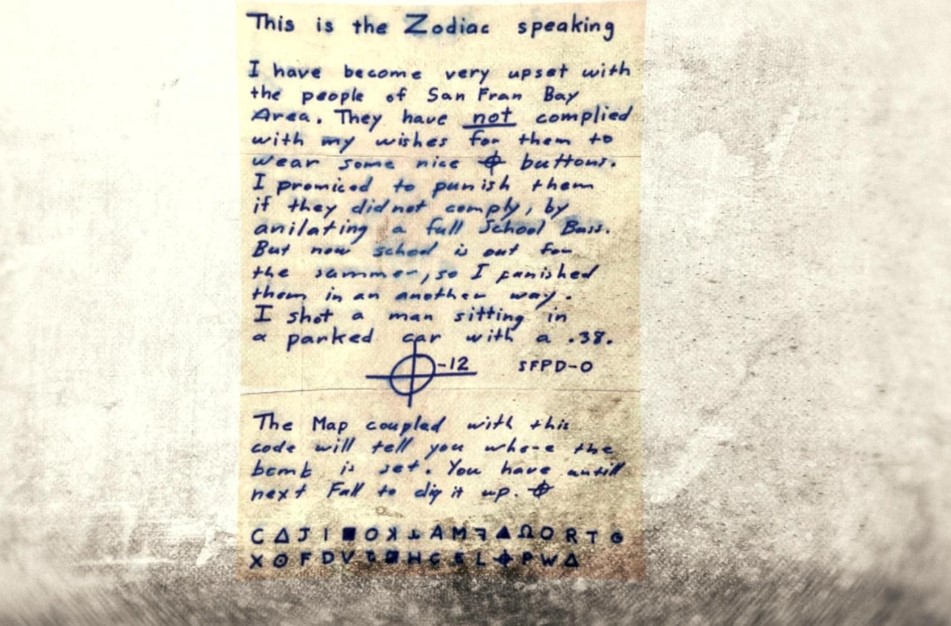 This is the Zodiac speaking
I have become very upset with
the people of San Fran Bay
Area. They have not complied
with my wishes for them to
wear some nice ⌖ buttons.
I promiced to punish them
if they did not comply, by
anilating a full School Buss.
But now school is out for
the summer, so I punished
them in an another way.
I shot a man sitting in
a parked car with a .38.
⌖-12 SFPD-0
The Map coupled with this
code will tell you where the
bomb is set. You have untill
next Fall to dig it up. ⌖
C Δ J I ■ O ꓘ ⅄ A M ▲ Ω O R T
X ⊙ F D V H C E L ⌖ P W Δ